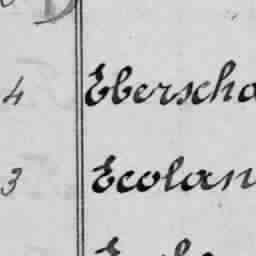 4 Eberscha
3 Ecolan